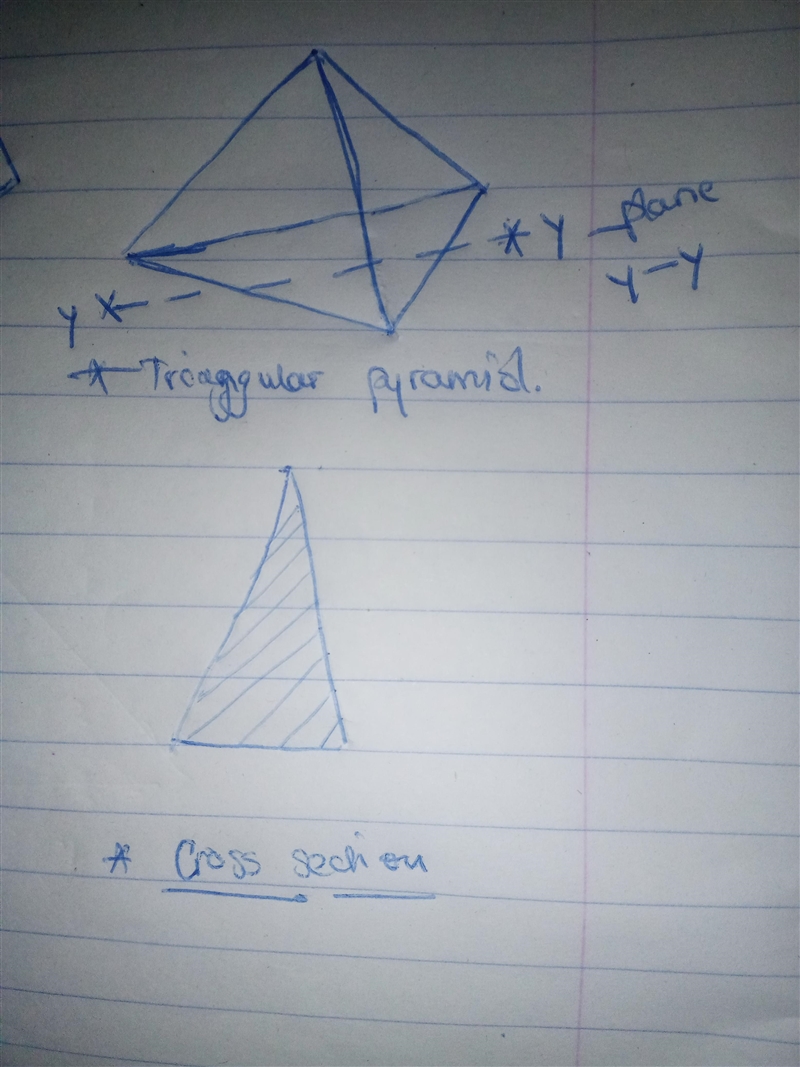 Y - plane
Y-Y
Y
* Triangular pyramid.
* Cross section